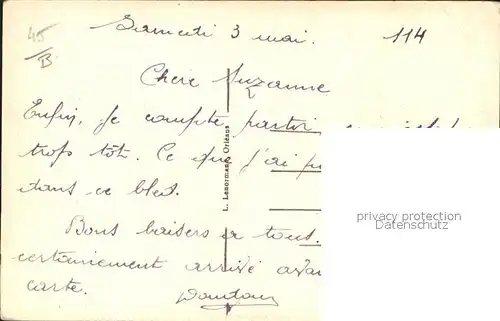 45
B
Samedi 3 mai. 114
Chère Suzanne
Enfin, je compte partir
trop tôt. Ce que j'ai
dans ce bled.
Bons baisers à tous.
certainement arrivé
carte.
L. Lenormand, Orléans
privacy protection
Datenschutz